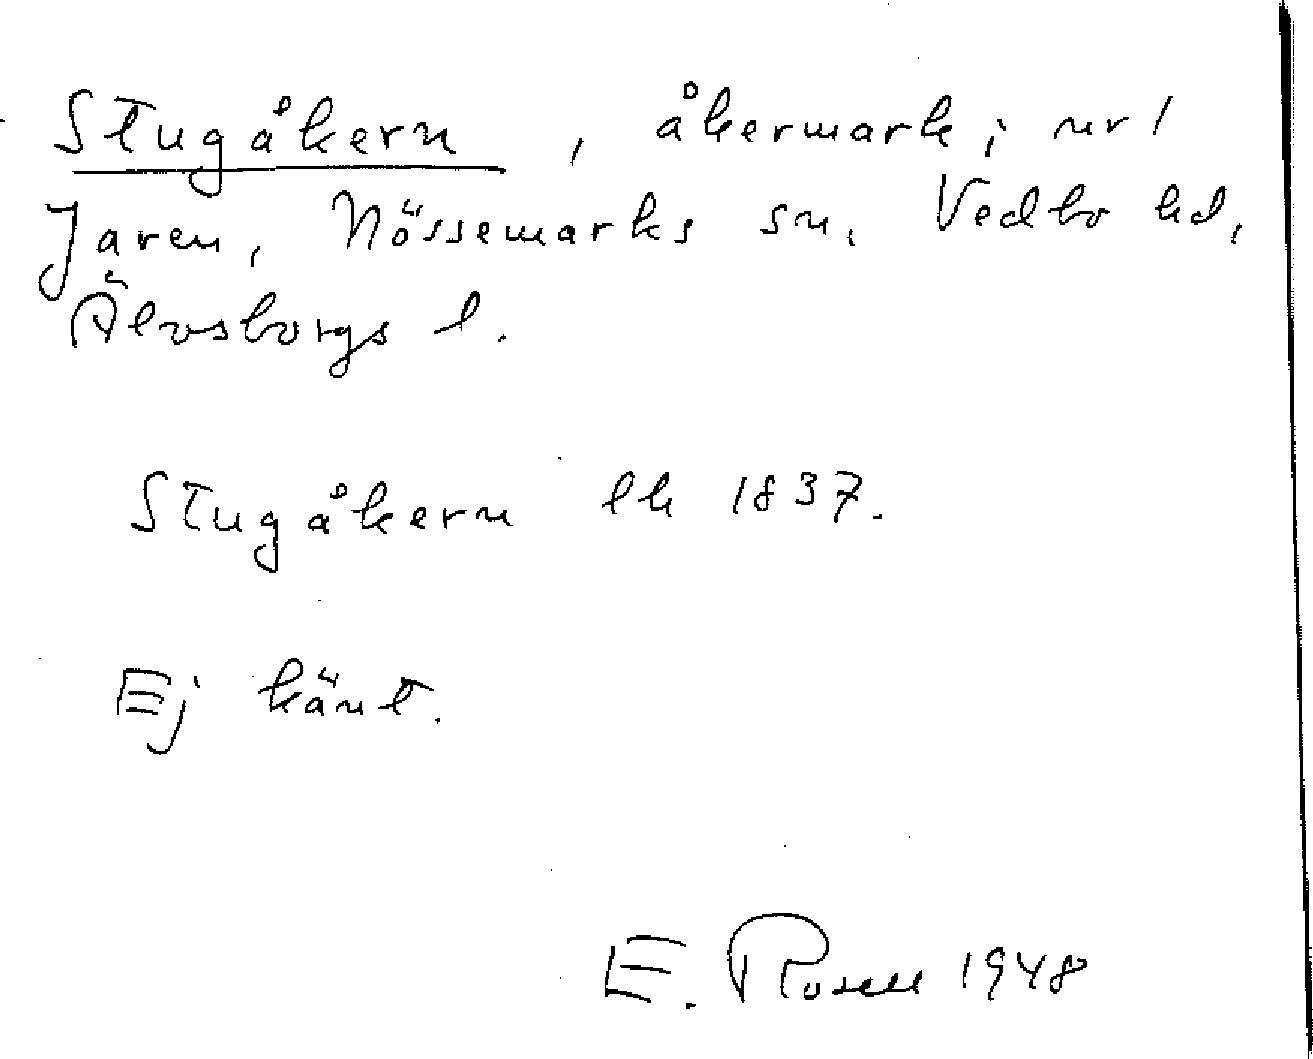 Stugåkern, åkermark, nr 1
Jaren, Nössemarks sn, Vedbo hd,
Älvsborgs l.
Stugåkern lh 1837.
Ej känt.
E. Rosell 1948